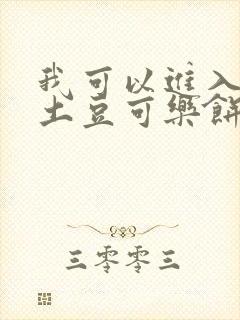 我可以進入
土豆可樂餅
三零零三